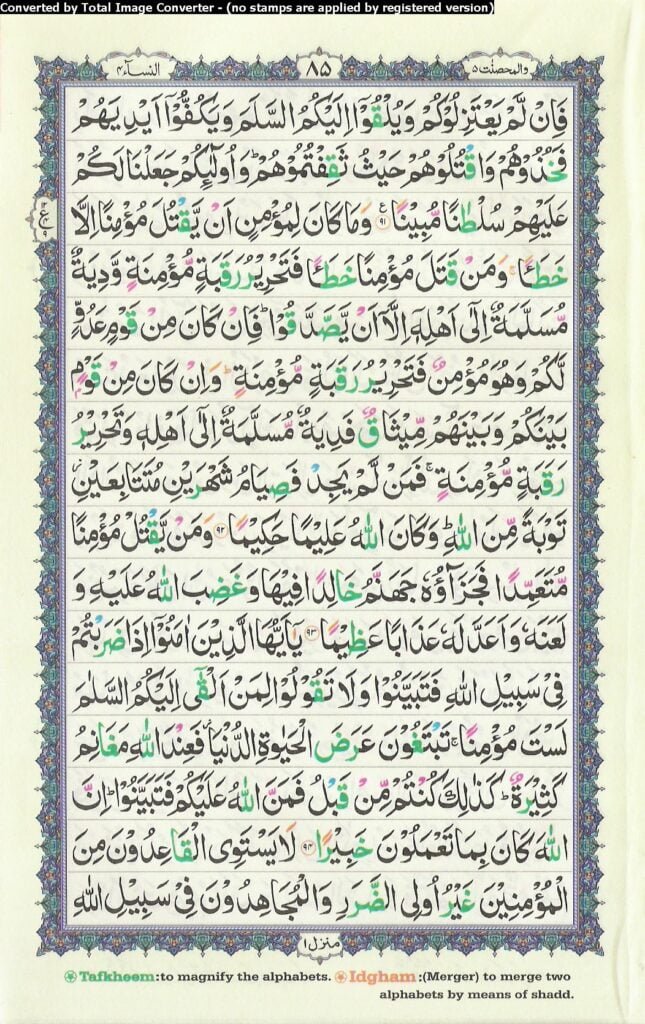 Converted by Total Image Converter - (no stamps are applied by registered version)
النسآء ٤
٨٥
والمحصنت ٥
فَاِنْ لَّمْ يَعْتَزِلُوْكُمْ وَيُلْقُوْۤا اِلَيْكُمُ السَّلَمَ وَيَكُفُّوْۤا اَيْدِيَهُمْ
فَخُذُوْهُمْ وَاقْتُلُوْهُمْ حَيْثُ ثَقِفْتُمُوْهُمْ ؕ وَاُولٰٓئِكُمْ جَعَلْنَا لَكُمْ
عَلَيْهِمْ سُلْطٰنًا مُّبِيْنًا ﴿۹۱﴾ وَمَا كَانَ لِمُؤْمِنٍ اَنْ يَّقْتُلَ مُؤْمِنًا اِلَّا
خَطَـًٔا ۚ وَمَنْ قَتَلَ مُؤْمِنًا خَطَـًٔا فَتَحْرِيْرُ رَقَبَةٍ مُّؤْمِنَةٍ وَّدِيَةٌ
مُّسَلَّمَةٌ اِلٰٓى اَهْلِهٖۤ اِلَّاۤ اَنْ يَّصَّدَّقُوْا ؕ فَاِنْ كَانَ مِنْ قَوْمٍ عَدُوٍّ
لَّكُمْ وَهُوَ مُؤْمِنٌ فَتَحْرِيْرُ رَقَبَةٍ مُّؤْمِنَةٍ ؕ وَاِنْ كَانَ مِنْ قَوْمٍۭ
بَيْنَكُمْ وَبَيْنَهُمْ مِّيْثَاقٌ فَدِيَةٌ مُّسَلَّمَةٌ اِلٰٓى اَهْلِهٖ وَتَحْرِيْرُ
رَقَبَةٍ مُّؤْمِنَةٍ ۚ فَمَنْ لَّمْ يَجِدْ فَصِيَامُ شَهْرَيْنِ مُتَتَابِعَيْنِ ؗ
تَوْبَةً مِّنَ اللّٰهِ ؕ وَكَانَ اللّٰهُ عَلِيْمًا حَكِيْمًا ﴿۹۲﴾ وَمَنْ يَّقْتُلْ مُؤْمِنًا
مُّتَعَمِّدًا فَجَزَآؤُهٗ جَهَنَّمُ خَالِدًا فِيْهَا وَغَضِبَ اللّٰهُ عَلَيْهِ وَ
لَعَنَهٗ وَاَعَدَّ لَهٗ عَذَابًا عَظِيْمًا ﴿۹۳﴾ يٰۤاَيُّهَا الَّذِيْنَ اٰمَنُوْۤا اِذَا ضَرَبْتُمْ
فِيْ سَبِيْلِ اللّٰهِ فَتَبَيَّنُوْا وَلَا تَقُوْلُوْا لِمَنْ اَلْقٰۤى اِلَيْكُمُ السَّلٰمَ
لَسْتَ مُؤْمِنًا ۚ تَبْتَغُوْنَ عَرَضَ الْحَيٰوةِ الدُّنْيَا ؗ فَعِنْدَ اللّٰهِ مَغَانِمُ
كَثِيْرَةٌ ؕ كَذٰلِكَ كُنْتُمْ مِّنْ قَبْلُ فَمَنَّ اللّٰهُ عَلَيْكُمْ فَتَبَيَّنُوْا ؕ اِنَّ
اللّٰهَ كَانَ بِمَا تَعْمَلُوْنَ خَبِيْرًا ﴿۹۴﴾ لَا يَسْتَوِى الْقَاعِدُوْنَ مِنَ
الْمُؤْمِنِيْنَ غَيْرُ اُولِى الضَّرَرِ وَالْمُجَاهِدُوْنَ فِيْ سَبِيْلِ اللّٰهِ
منزل ١
Tafkheem:to magnify the alphabets. Idgham :(Merger) to merge two
alphabets by means of shadd.